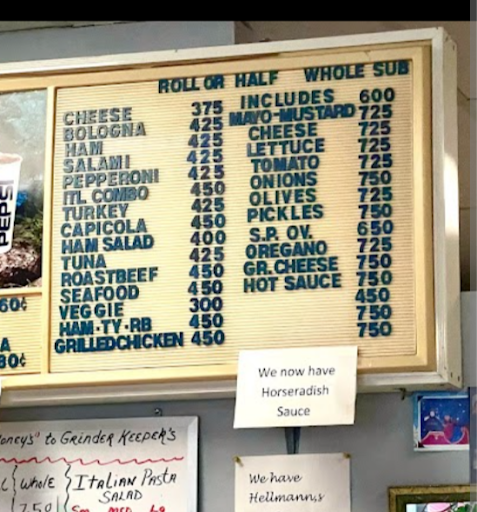 ROLL OR HALF WHOLE SUB
CHEESE 375 INCLUDES 600
BOLOGNA 425 MAYO-MUSTARD 725
HAM 425 CHEESE 725
SALAMI 425 LETTUCE 725
PEPPERONI 425 TOMATO 725
ITL COMBO 450 ONIONS 750
TURKEY 425 OLIVES 725
CAPICOLA 450 PICKLES 750
HAM SALAD 400 S.P. OV. 650
TUNA 425 OREGANO 725
ROASTBEEF 450 GR.CHEESE 750
SEAFOOD 450 HOT SAUCE 750
VEGGIE 300 450
HAM-TY-RB 450 750
GRILLEDCHICKEN 450 750
PEPS
60¢
A
30¢
We now have
Horseradish
Sauce
We have
Hellmann,s
oneys" to GRINDER KEEPER'S
WHOLE ITALIAN PASTA
SALAD
7.50 Sm MED Lg